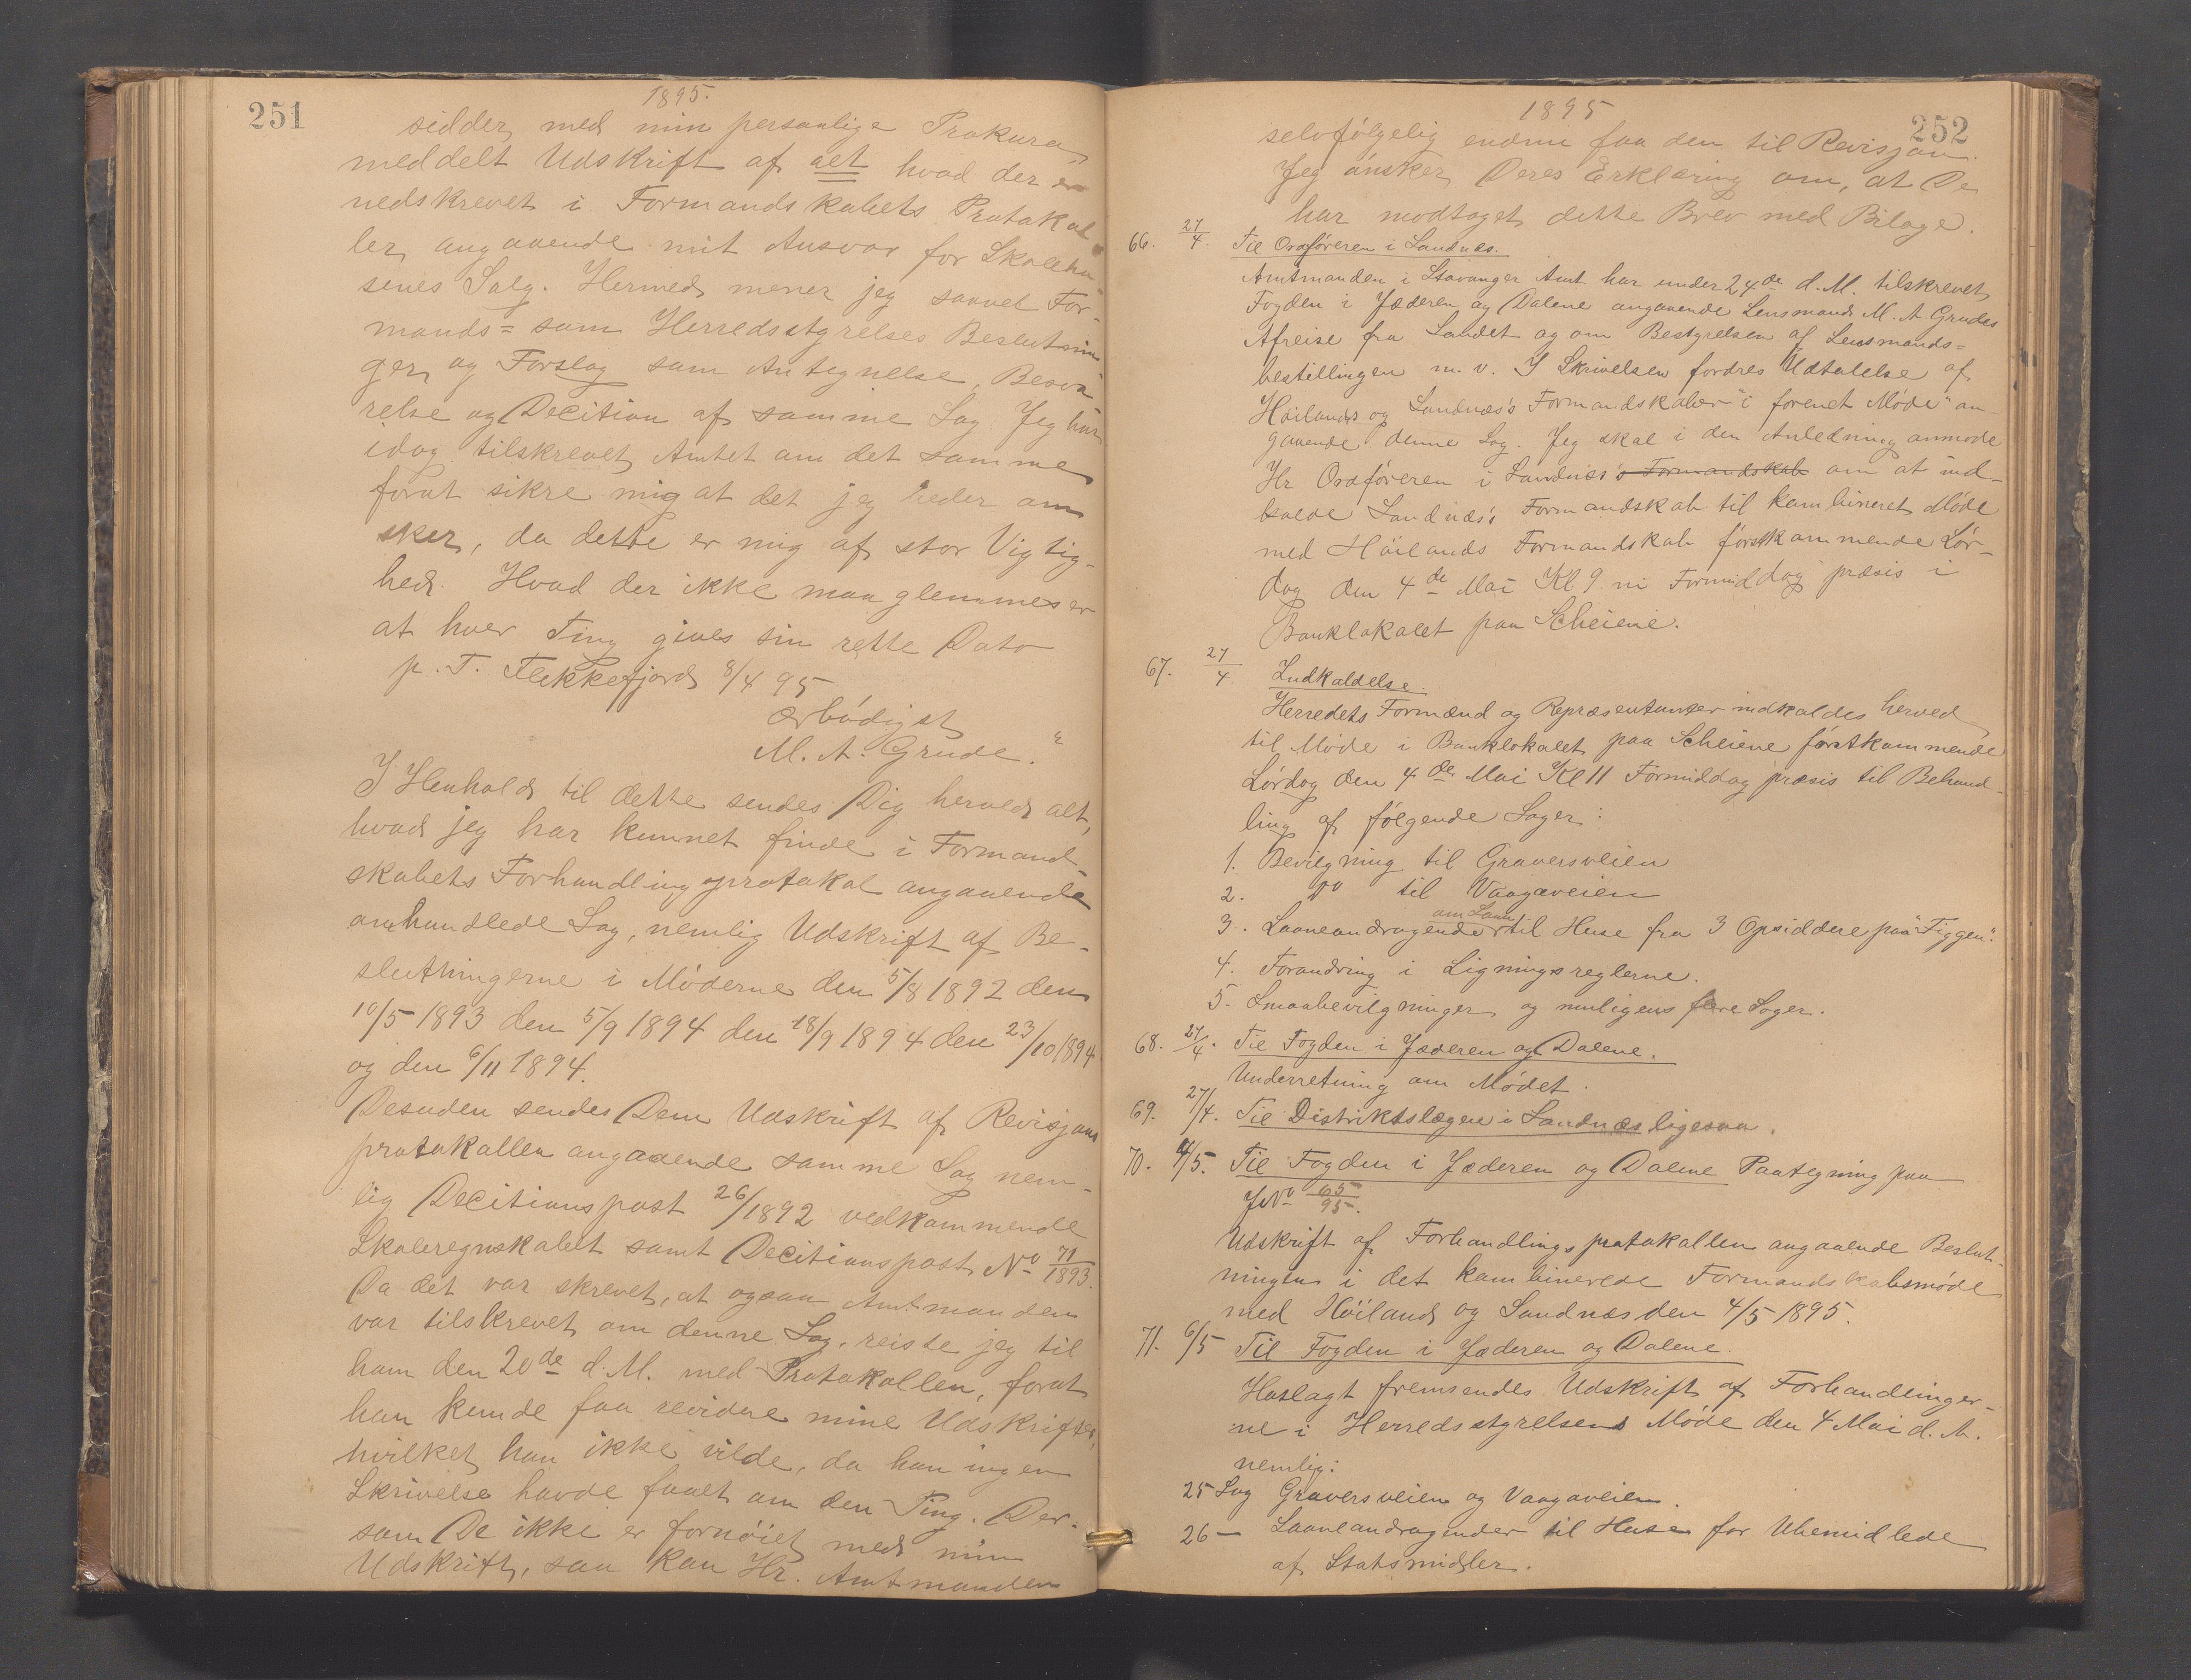 251
1895.
sidder, med min personlige Prokura,
meddelt Udskrift af alt hvad der er
nedskrevet i Formandskabets Protokol-
ler, angaaende mit Ansvar for Skolehu-
senes Salg. Hermed mener jeg saavel For-
mands= som Herredsstyrelses Beslutnin-
ger, og Forslag som Antegnelse, Besva-
relse og Decition af samme Sag. Jeg har
idag tilskrevet Amtet om det samme
forat sikre mig at det jeg beder om
sker, da dette er mig af stor Vigtig-
hed. Hvad der ikke maa glemmes er
at hver Ting gives sin rette Dato
p. T. Flekkefjord 8/4 95
ærbödigst
M. A. Grude."
I Henhold til dette sendes Dig herved alt,
hvad jeg har kunnet finde i Formand-
skabets Forhandlingsprotokol angaaende
omhandlede Sag, nemlig Udskrift af Be-
slutningerne i Möderne den 5/8 1892 den
10/5 1893 den 5/9 1894 den 18/9 1894 den 23/10 1894
og den 6/11 1894.
Desuden sendes Dem Udskrift af Revisjons
protokollen angaaende samme Sag nem-
lig Decitionspost 26/1892 vedkommende
Skoleregnskabet samt Decitionspost No 71/1893.
Da det var skrevet, at ogsaa Amtmanden
var tilskrevet om denne Sag, reiste jeg til
ham den 20de d. M. med Protokollen, forat
han kunde faa revidere mine Udskrifter,
hvilket han ikke vilde, da han ingen
Skrivelse havde faaet om den Ting. Der-
som De ikke er fornöiet med min
Udskrift, saa kan Hr. Amtmanden
252
1895
selvfölgelig endnu faa den til Revisjon.
Jeg önsker Deres Erklæring om, at De
har modtaget dette Brev med Bilage.
66. 27/4. Til Ordföreren i Sandnes.
Amtmanden i Stavanger Amt har under 24de d. M. tilskrevet
Fogden i Jæderen og Dalene angaaende Lensmand M. A. Grudes
Afreise fra Landet og om Bestyrelsen af Lensmands=
bestillingen m. v. I Skrivelsen fordres Udtalelse af
Höilands og Sandnæs's Formandskaber "i forenet Möde" an-
gaaende denne Sag. Jeg skal i den Anledning anmode
Hr Ordföreren i Sandnæs's Formandskab om at ind-
kalde Sandnæs's Formandskab til kombineret Möde
med Höilands Formandskab förstkommende Lör-
dag den 4de Mai Kl 9 ni Formiddag præsis i
Banklokalet paa Scheiene.
67. 27/4. Indkaldelse.
Herredets Formænd og Repræsentanter indkaldes herved
til Möde i Banklokalet paa Scheiene förstkommende
Lördag den 4de Mai Kl 11 Formiddag præsis til Behand-
ling af fölgende Sager:
1. Bevilgning til Graversveien
2. do til Vaagaveien
3. Laaneandragender om Laan til Huse fra 3 Opsiddere paa "Figgen".
4. Forandring i Ligningsreglerne.
5. Smaabevilgninger og muligens flere Sager.
68. 27/4. Til Fogden i Jæderen og Dalene.
Underretning om Mödet.
69. 27/4. Til Distriktslægen i Sandnæs ligesaa.
70. 4/5. Til Fogden i Jæderen og Dalene Paategning paa
JNo 65/95.
Udskrift af Forhandlingsprotokollen angaaende Beslut-
ningen i det kombinerede Formandskabsmöde
med Höiland og Sandnæs den 4/5 1895.
71. 6/5 Til Fogden i Jæderen og Dalene.
Hoslagt fremsendes Udskrift af Forhandlinger-
ne i Herredsstyrelsens Möde den 4 Mai d. A.
nemlig:
25 Sag Graversveien og Vaagaveien.
26 — Laaneandragender til Huse for Ubemidlede
af Statsmidler.